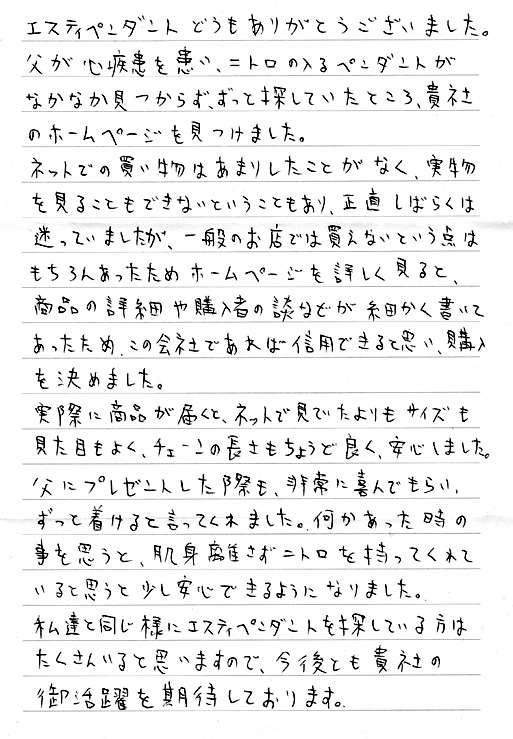 エスティペンダントどうもありがとうございました。
父が心疾患を患い、ニトロの入るペンダントが
なかなか見つからず、ずっと探していたところ、貴社
のホームページを見つけました。
ネットでの買い物はあまりしたことがなく、実物
を見ることもできないということもあり、正直しばらくは
迷っていましたが、一般のお店では買えないという点は
もちろんあったためホームページを詳しく見ると、
商品の詳細や購入者の談などが細かく書いて
あったため、この会社であれば信用できると思い、購入
を決めました。
実際に商品が届くと、ネットで見ていたよりもサイズも
見た目もよく、チェーンの長さもちょうど良く、安心しました。
父にプレゼントした際も、非常に喜んでもらい、
ずっと着けると言ってくれました。何かあった時の
事を思うと、肌身離さずニトロを持ってくれて
いると思うと少し安心できるようになりました。
私達と同じ様にエスティペンダントを探している方は
たくさんいると思いますので、今後とも貴社の
御活躍を期待しております。